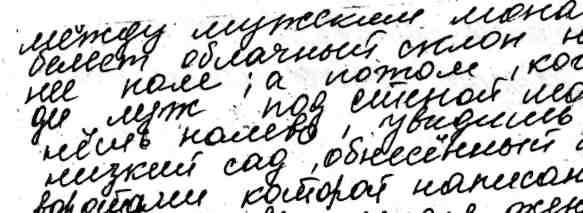 между мужским мона
белеет облачный склон н
нее поле, а потом, ког
ди луж под стеной мо
нёшь налево, увидишь
низкий сад, обнесённый
воротами которой написан